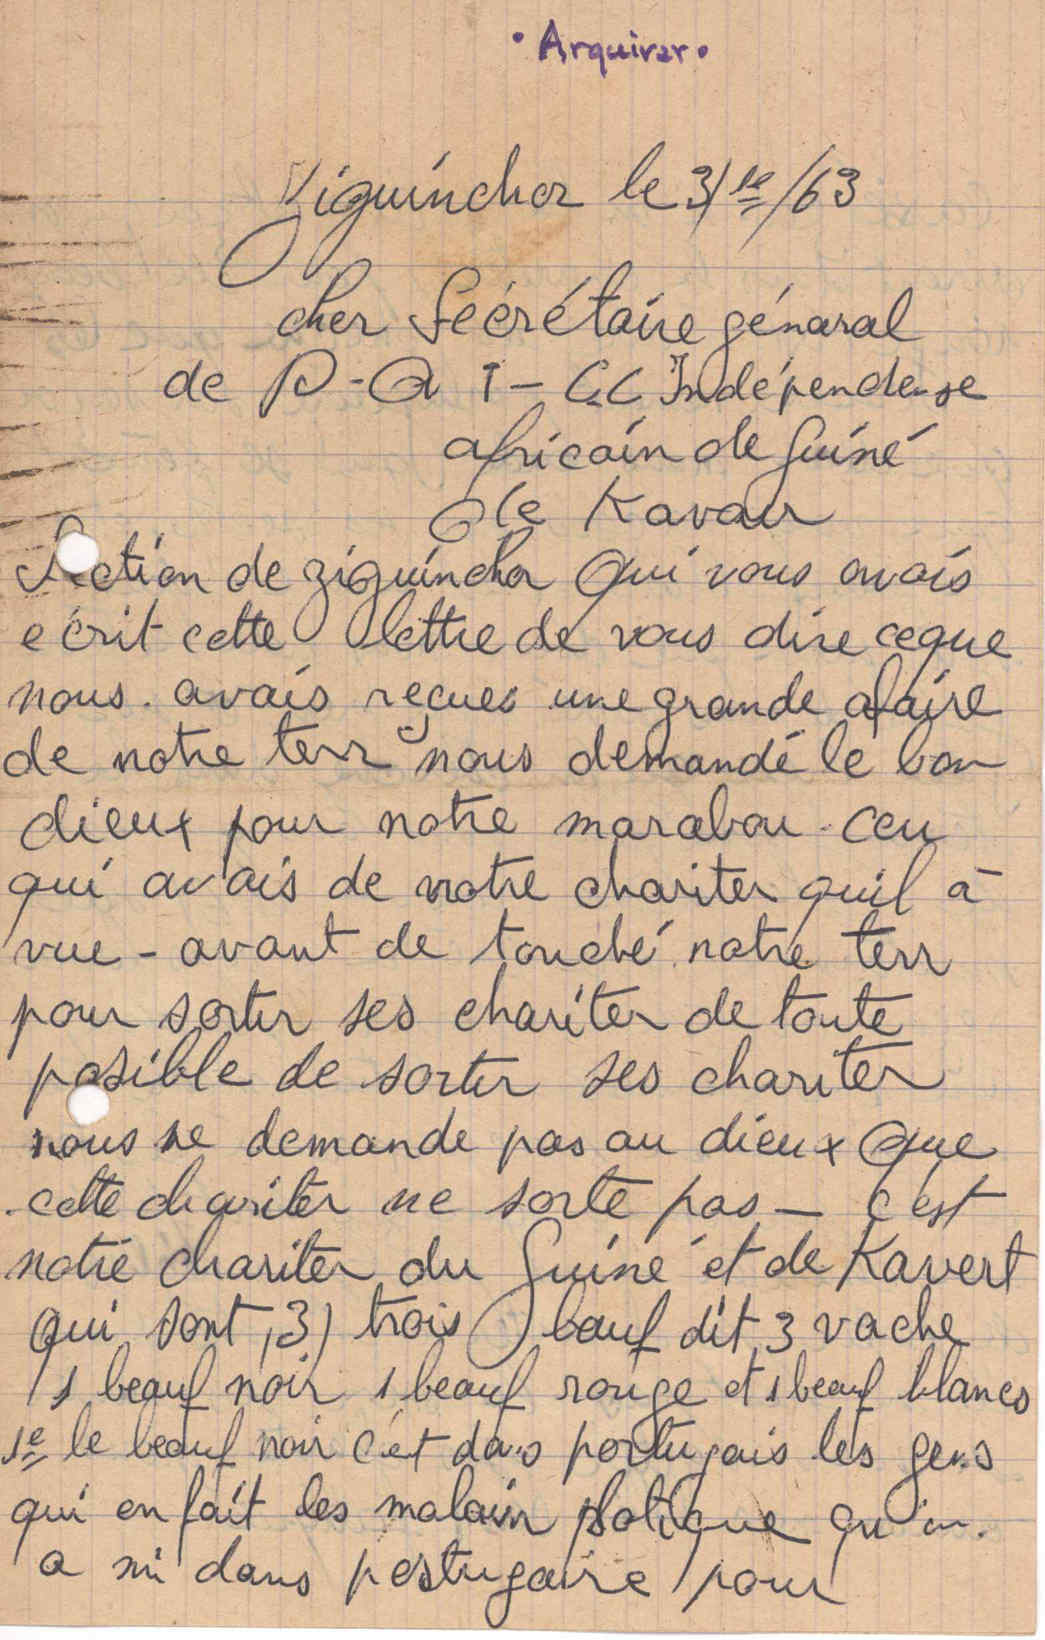 • Arquivar •
Ziguinchor le 3/1e/63
cher Sécrétaire génaral
de P-A I-G.C Indépendense
africain de Guiné
de Kavair
Section de ziguinchor Qui vous avais
ecrit cette lettre de vous dire ceque
nous. avais reçues une grande afaire
de notre terr nous demandé le bon
dieux pour notre marabou. ceu
qui avais de notre chariter quil à
vue - avant de touché notre terr
pour sortir ses chariter de toute
posible de sortir ses chariter
nous ne demande pas au dieux Que
cette chariter ne sorte pas - c'est
notre chariter du Guiné et de Kavert
Qui sont ,3) trois bauf dit 3 vache
1 beauf noir 1 beauf rouge et 1 beauf blancs
1e le beauf noir c'et dans portugais les gens
qui en fait les malain qu'on.
a mi dans portugaire pour